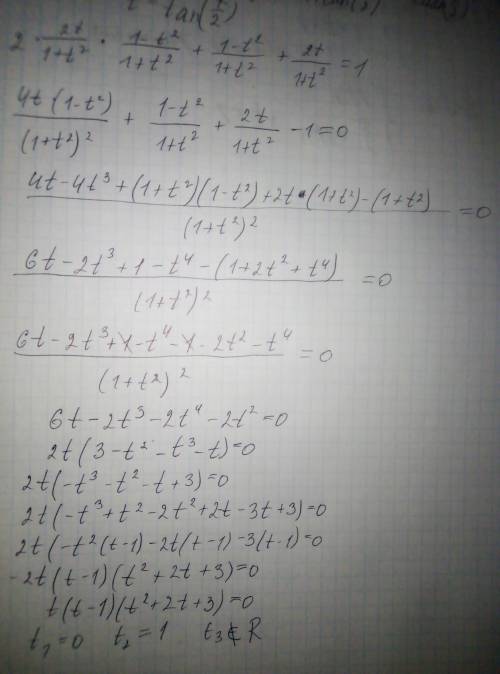 t = tan(x/2)
2 · 2t/(1+t²) · (1-t²)/(1+t²) + (1-t²)/(1+t²) + 2t/(1+t²) = 1
4t(1-t²)/(1+t²)² + (1-t²)/(1+t²) + 2t/(1+t²) - 1 = 0
(4t - 4t³ + (1+t²)(1-t²) + 2t·(1+t²) - (1+t²))/(1+t²)² = 0
(6t - 2t³ + 1 - t⁴ - (1+2t²+t⁴))/(1+t²)² = 0
(6t - 2t³ + 1 - t⁴ - 1 - 2t² - t⁴)/(1+t²)² = 0
6t - 2t³ - 2t⁴ - 2t² = 0
2t(3 - t² - t³ - t) = 0
2t(-t³ - t² - t + 3) = 0
2t(-t³ + t² - 2t² + 2t - 3t + 3) = 0
2t(-t²(t-1) - 2t(t-1) - 3(t-1) = 0
-2t(t-1)(t² + 2t + 3) = 0
t(t-1)(t² + 2t + 3) = 0
t₁ = 0 t₂ = 1 t₃ ∉ R